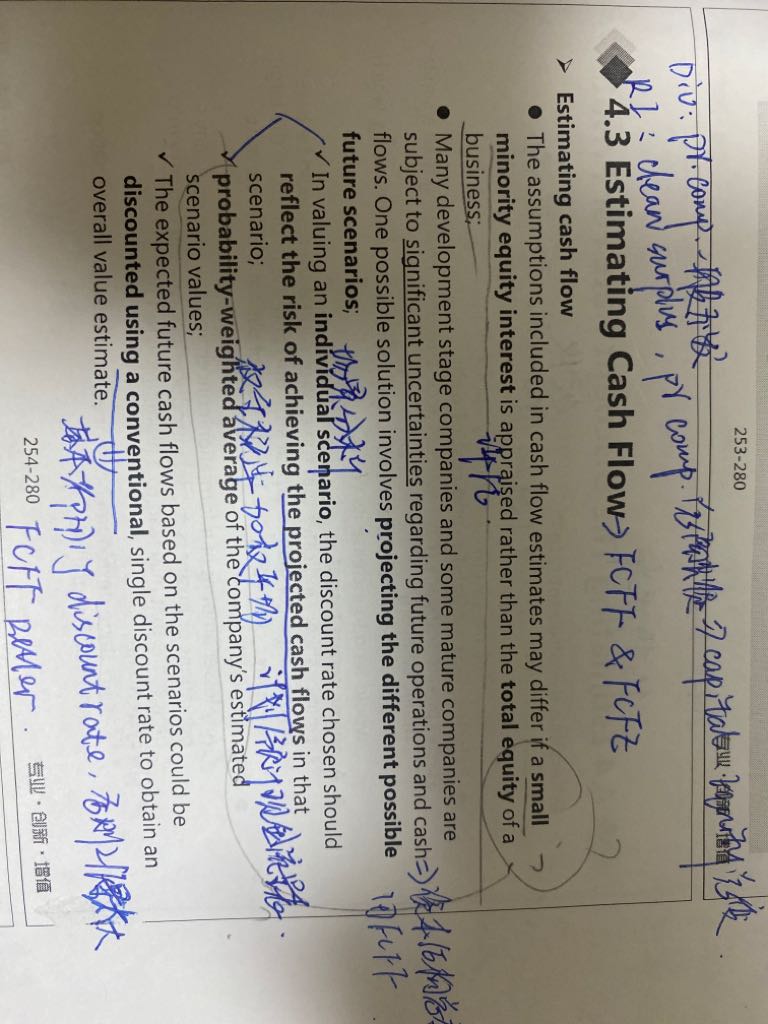 253-280
专业·创新·增值
Div: pr. comp.
RI: clean surplus, pr comp.
4.3 Estimating Cash Flow → FCFF & FCFE
➢ Estimating cash flow
● The assumptions included in cash flow estimates may differ if a small
minority equity interest is appraised rather than the total equity of a
评估.
business;
● Many development stage companies and some mature companies are
subject to significant uncertainties regarding future operations and cash ⇒ 资本结构
flows. One possible solution involves projecting the different possible 用FCFF
future scenarios; 场景分析
✓ In valuing an individual scenario, the discount rate chosen should
reflect the risk of achieving the projected cash flows in that
scenario;
✓ probability-weighted average of the company's estimated
scenario values;
✓ The expected future cash flows based on the scenarios could be
discounted using a conventional, single discount rate to obtain an
overall value estimate.
discount rate,
FCFF better.
254-280
专业·创新·增值